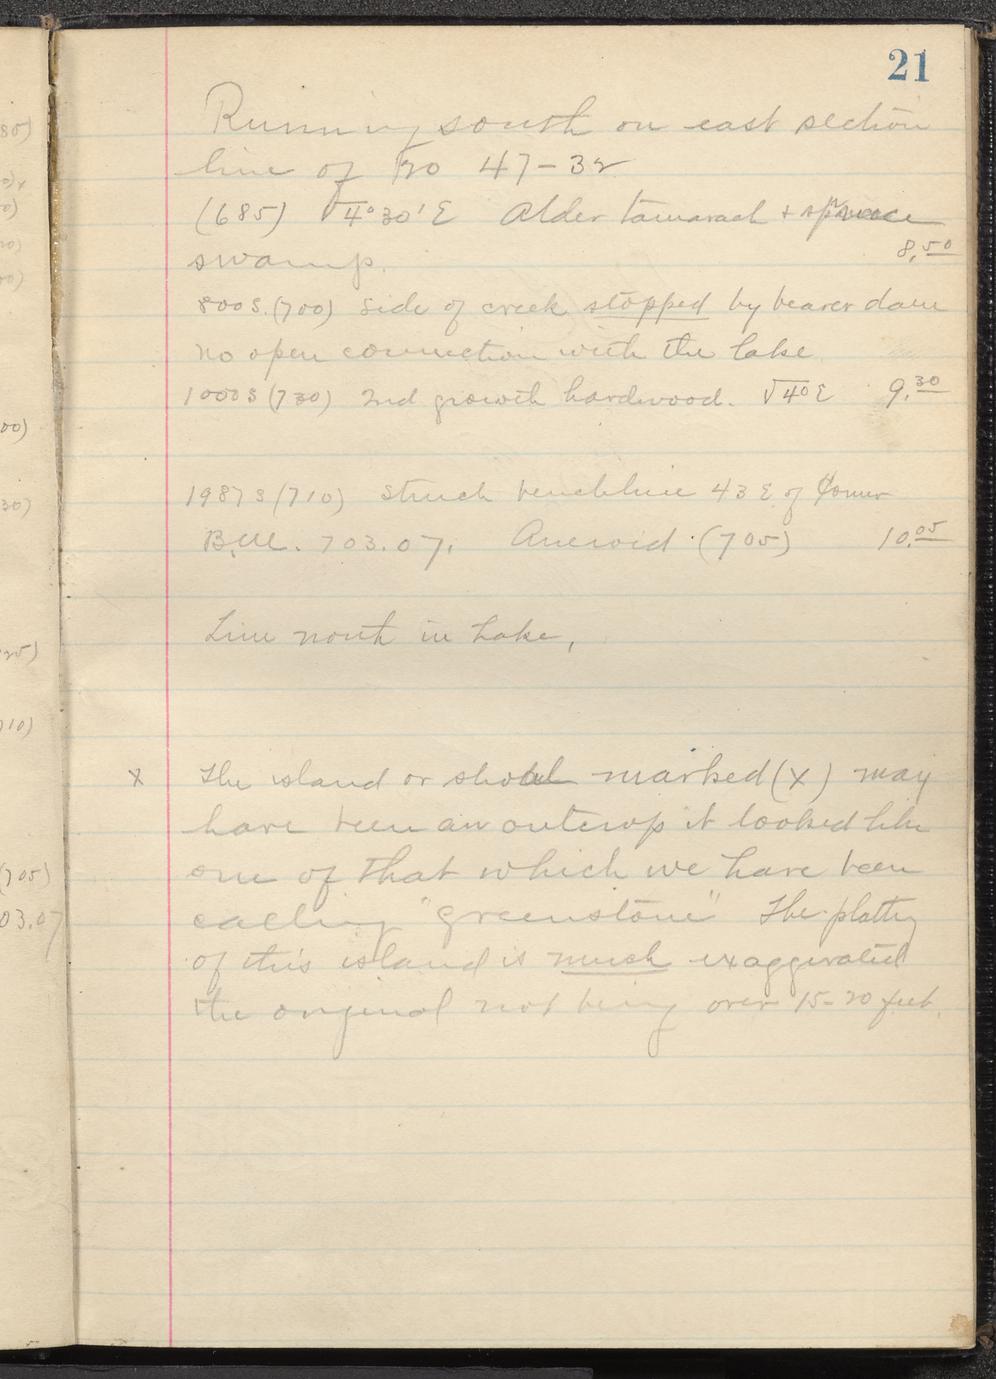 21
Running south on east section
line of 20 47-32
(685) √4°30'E Alder tamarack + spruce
swamp. 8.50
800S. (700) side of creek stopped by beaver dam
no open connection with the lake
1000S (730) 2nd growth hardwood. √4°E 9.30
1987S (710) Struck benchline 43 E of Corner
B.M. 703.07. Aneroid (705) 10.05
Line north in Lake,
x The island or shoal marked (x) may
have been an outcrop it looked like
one of that which we have been
calling "greenstone" The platting
of this island is much exaggerated
the original not being over 15-20 feet.
80)
00)
30)
25)
710)
(705)
03.07